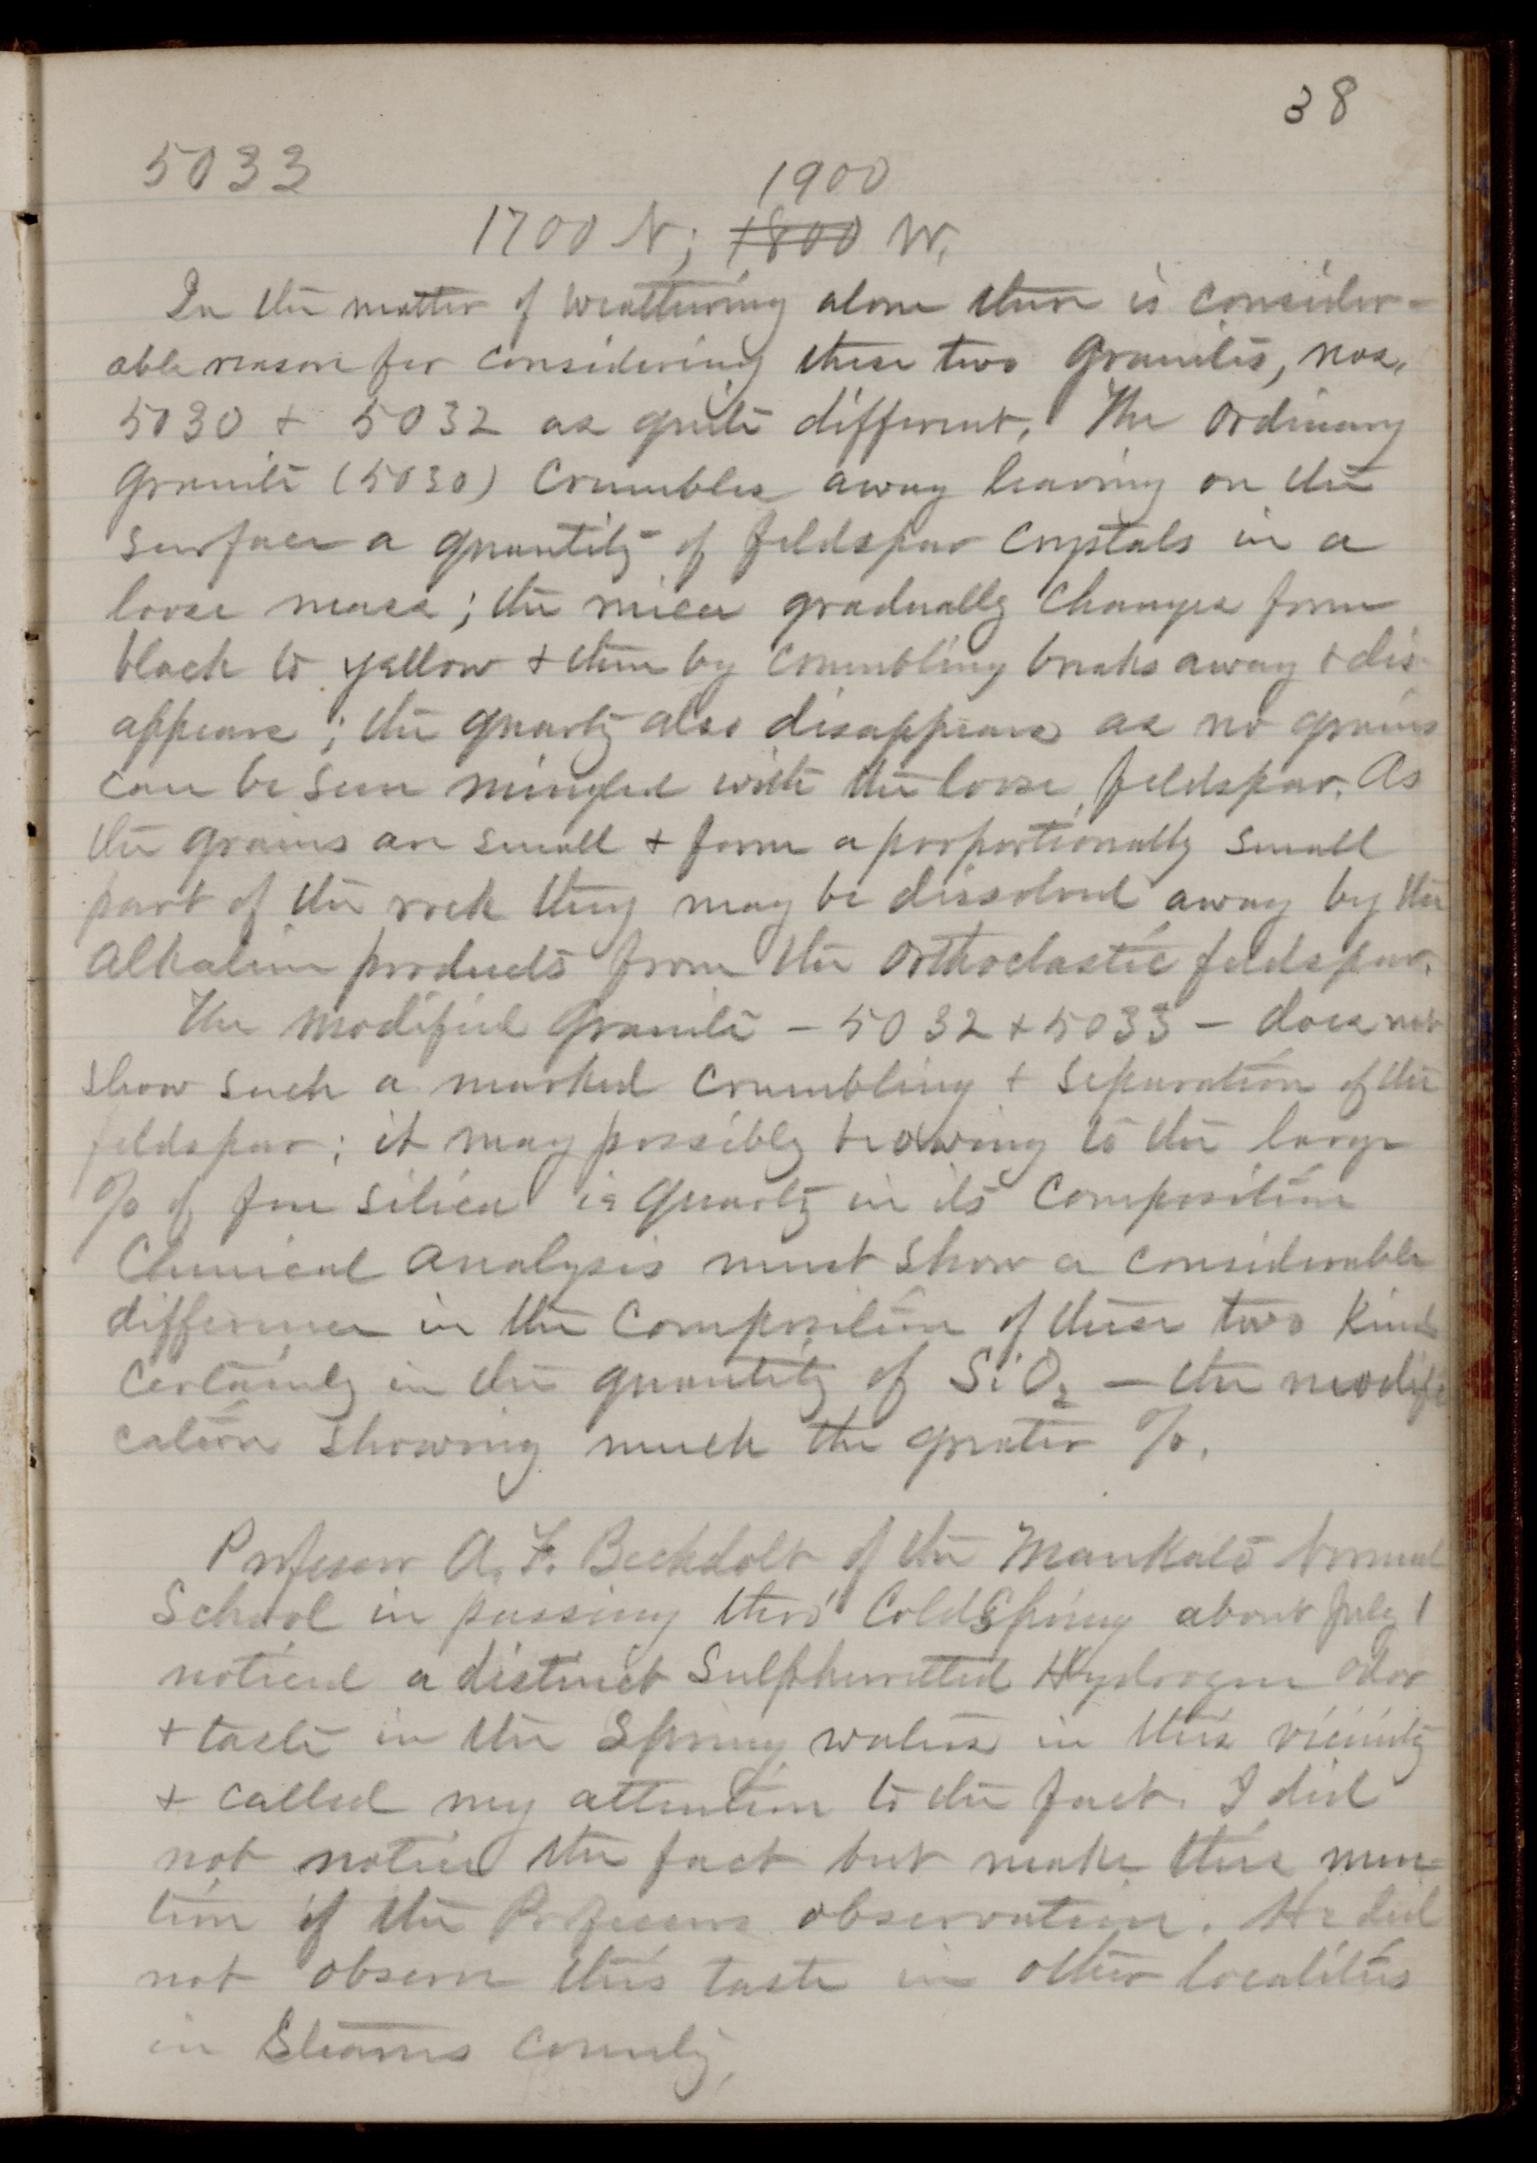 38
5033
1900
1700 N; 1800 W.
In the matter of weathering alone there is consider-
able reason for considering these two granites, nos.
5030 + 5032 as quite different. The ordinary
granite (5030) crumbles away leaving on the
surface a quantity of feldspar crystals in a
loose mass; the mica gradually changes from
black to yellow + then by crumbling breaks away + dis-
appears; the quartz also disappears as no grains
can be seen mingled with the loose feldspar. As
the grains are small + form a porportionally small
part of the rock they may be dissolved away by the
alkaline products from the orthoclastic feldspar.
The modified granite - 5032 + 5033 - does not
show such a marked crumbling + separation of the
feldspar; it may possibly be owing to the large
% of free silica is quartz in its composition
Chemical analysis must show a considerable
difference in the composition of these two kinds
certainly in the quantity of SiO2 - the modifi
cation showing much the greater %.
Professor A. F. Bechdolt of the Mankato Normal
School in passing thro' Cold Spring about July 1
noticed a distinct Sulphuretted Hydrogen odor
+ taste in the Spring waters in this vicinity
+ called my attention to the fact. I did
not notice the fact but make this men-
tion of the Professors observation. He did
not observe this taste in other localities
in Stearns County,